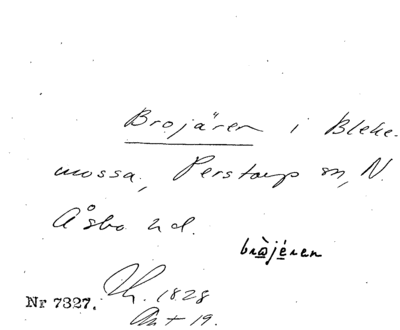 Brojären i Bleke-
mossa, Perstorp sn, N.
Åsbo hd.
bròjéren
Th. 1828
Nr 7327.
Ant 19.